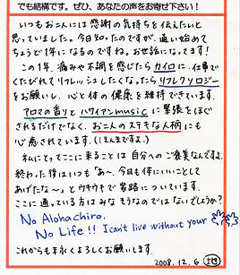 でも結構です。ぜひ、あなたの声をお寄せ下さい!
いつもお二人には感謝の気持ちを伝えたいと
思っていました。今日知ったのですが、通い始めて
ちょうど1年になるのですね。お世話になってます!
この1年、痛みや不調を感じたらカイロに、仕事で
くたびれてリフレッシュしたくなったらリフレクソロジー
をお願いし、心と体の健康を維持できています。
アロマの香りとハワイアンmusicに緊張をほぐ
されるだけでなく、お二人のステキな人柄にも
心癒されています。(ほんまですよ。)
私にとってここに来ることは自分へのご褒美なんです。
終わった後はいつも「あ~、今日も体にいいことして
あげたな~」とウキウキで家路についています。
ここに通っている方はみなそうなのではないでしょうか?
No Alohachiro,
No Life!! I can't live without your
これからも末永くよろしくお願いします。
2008.12.6